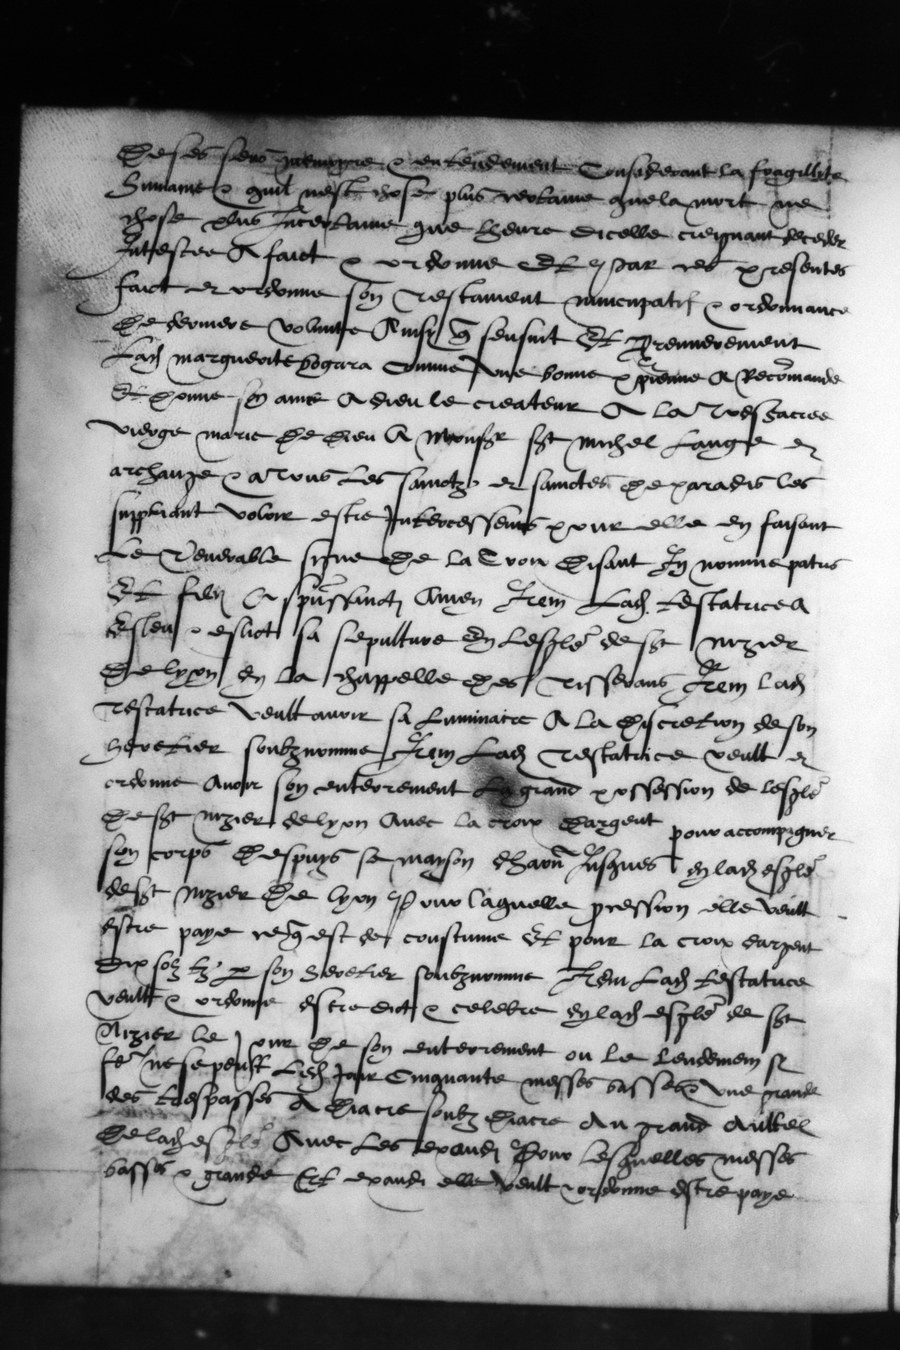 de ses sens memoyre & entendement Considerant la fragillite
humaine & quil nest chose plus certaine que la mort ne
chose plus Incertaine que lheure dicelle creignant deceder
Intestee A faict & ordonne Et par ces presentes
faict et ordonne son testament nuncupatif & ordonnance
de derniere volunte Ainsy q sensuit Et premierement
Lad marguerite Comme Une bonne xpienne A Recomande
Et donne son ame A dieu le createur A La tressacree
vierge marie de dieu A monsr sst michel Lange et
archange & A tous Les sainctz et sainctes de paradis les
suppliant voloir estre Intercesseurs pour elle en faisant
Le venerable signe de la Croix disant In nomine patris
Et filii & spus sancti Amen Item Lad testatrice a
Esleu & eslict sa sepulture En Leglse de sst nizier
de lyon en la chappelle des Item lad
testatrice veult avoir sa Luminaire A la discretion de son
heretier soubznomme Item Lad testatrice veult et
ordonne Avoir son enterrement La grand possession de leglse
de sst nizier de lyon Avec la croix dargent pour accompaigner
son corps despuys sa mayson Jusques en lad esglse
de sst nizier de lyon Pour laquelle pression elle veult
estre paye ce q est de coustume Et pour la croix dargent
dix solz tz p son heretier soubznomme Item Lad testatrice
veult & ordonne estre dict & celebre en lad esglse de sst
Nizier le Jour de son enterrement ou le lendemein si
fe ne se peult Led Jour Cinquante messes basses & une grande
des trespasses A diacre soubz diacre Au grand Aultel
de lad esglse Avec Les exaudi Pour lesquelles messes
basses & grande Et exaudi elle veult & ordonne estre paye